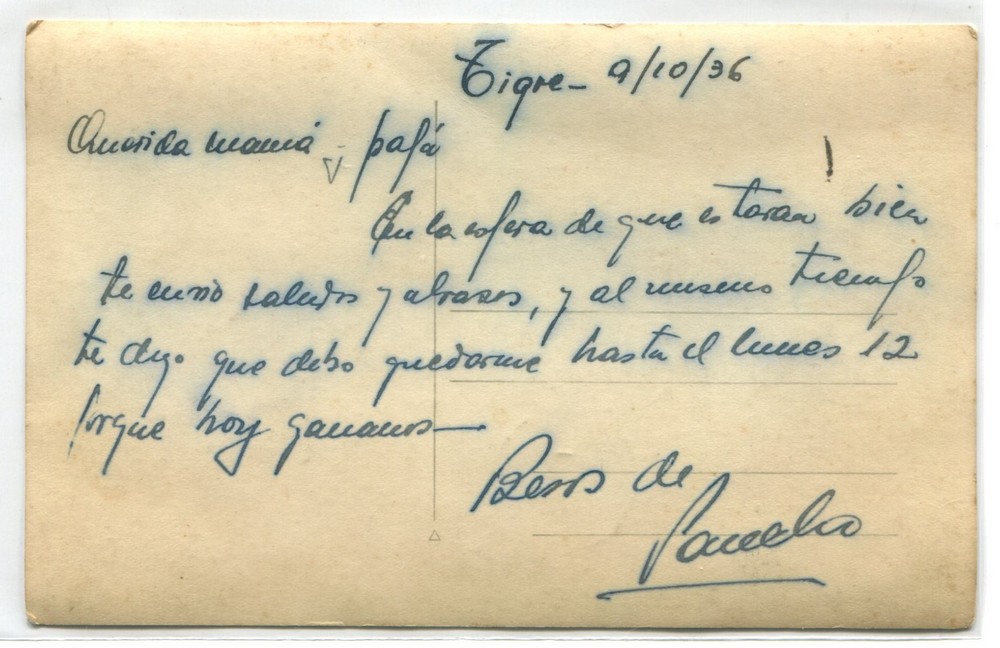 Tigre - 9/10/36
Querida mamá y papá
En la espera de que estaran bien
te envio saludos y abrasos, y al mismo tiempo
te digo que debo quedarme hasta el lunes 12
porque hoy ganamos —
Besos de
Pancho